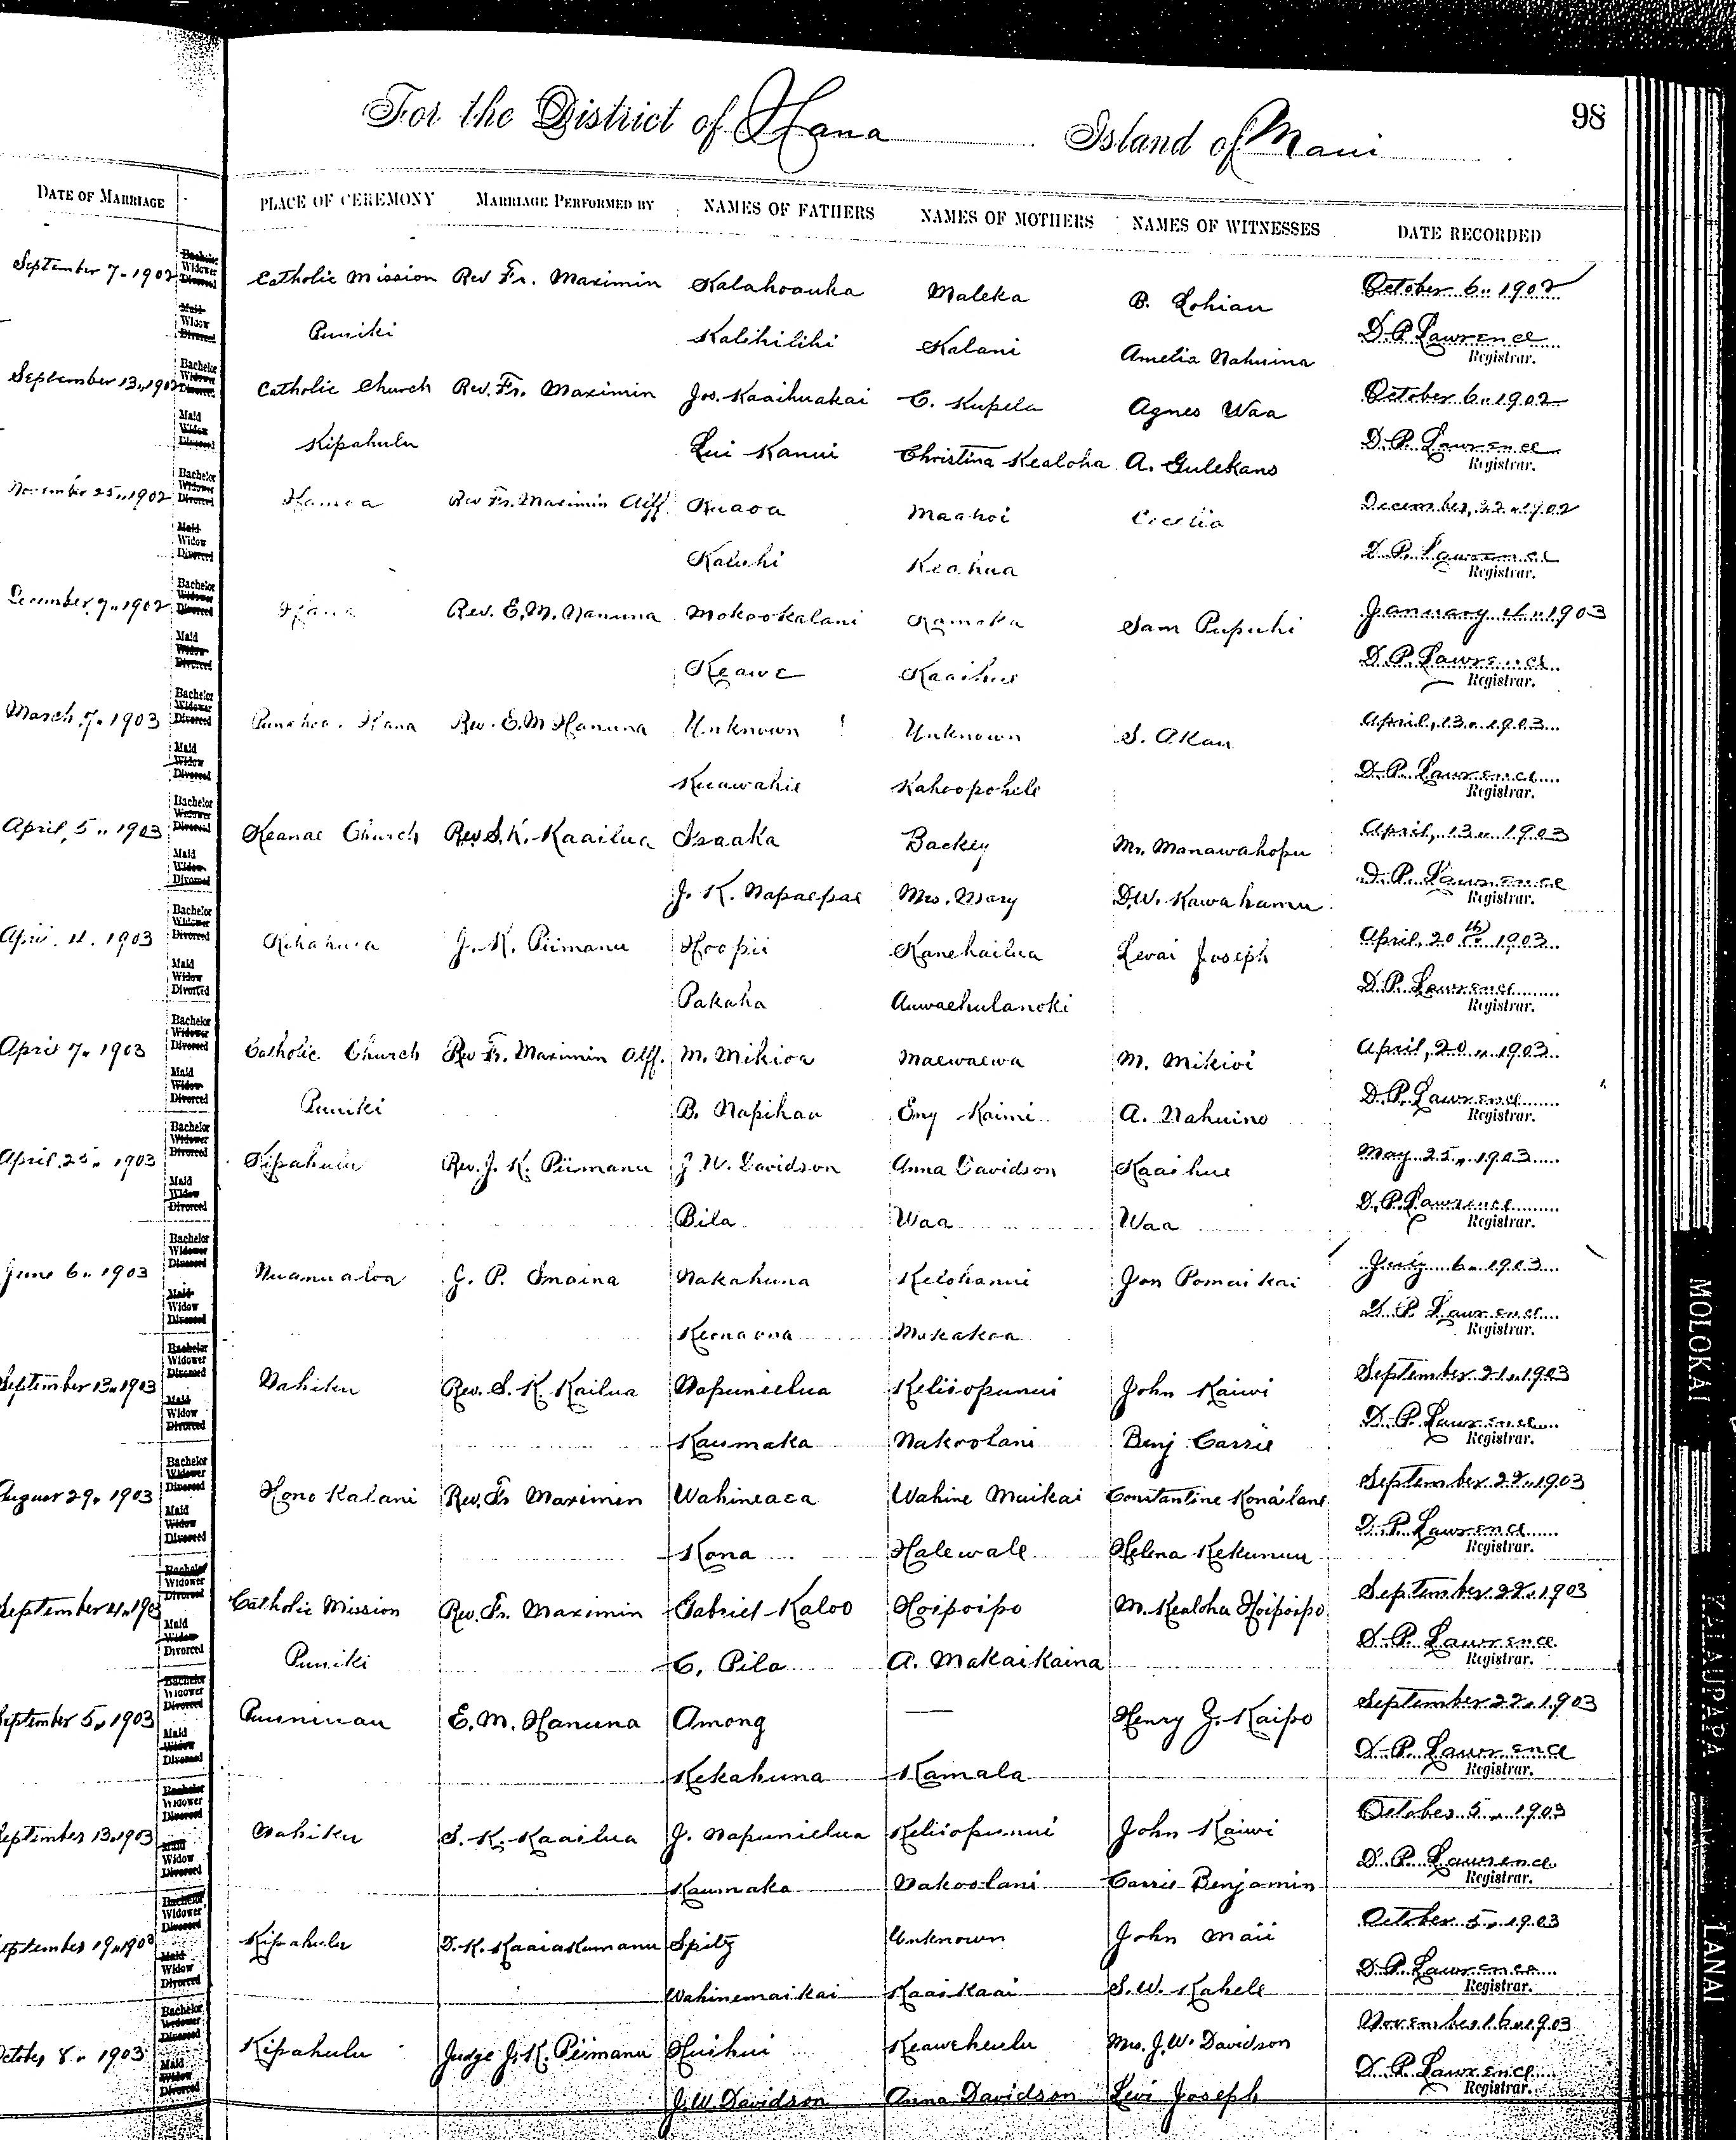 98
For the District of Hana Island of Maui
DATE OF MARRIAGE PLACE OF CEREMONY MARRIAGE PERFORMED BY NAMES OF FATHERS NAMES OF MOTHERS NAMES OF WITNESSES DATE RECORDED
September 7" 1902 Bachelor Widower Divorced Catholic Mission Rev Fr. Maximin Kalahoauka Maleka B. Lohiau October 6" 1902
Maid Widow Divorced Puuiki Kalihilihi Kalani Amelia Nahuina D. P. Lawrence
Registrar.
September 13" 1902 Bachelor Widower Divorced Catholic Church Rev. Fr. Maximin Jos. Kaaihuakai C. Kupela Agnes Waa October 6" 1902
Maid Widow Divorced Kipahulu Lui Kanui Christina Kealoha A. Gulekans D. P. Lawrence
Registrar.
November 25" 1902 Bachelor Widower Divorced Hamoa Rev Fr. Maximin Alff Kuaoa Maahoi Cecelia December, 22" 1902
Maid Widow Divorced Kauhi Keahua D. P. Lawrence
Registrar.
December, 7" 1902 Bachelor Widower Divorced Hana Rev. E. M. Hanuna Mokookalani Kamaka Sam Pupuhi January 4" 1903
Maid Widow Divorced Keawe Kaaihue D. P. Lawrence
Registrar.
March, 7" 1903 Bachelor Widower Divorced Hana Rev. E. M Hanuna Unknown Unknown S. Akau April, 13" 1903
Maid Widow Divorced Kuawahie Kahoopohele D. P. Lawrence
Registrar.
April, 5" 1903 Bachelor Widower Divorced Keanae Church Rev S. K. Kaailua Isaaka Backey Mr. Manawahopu April, 13" 1903
Maid Widow Divorced J. K. Napaepae Mrs. Mary D. W. Kawahamu D. P. Lawrence
Registrar.
April. 11. 1903 Bachelor Widower Divorced J. K. Piimanu Hoopii Kanehailua Levai Joseph April, 20th 1903
Maid Widow Divorced Pakaha Auwaehulanoki D. P. Lawrence
Registrar.
April 7" 1903 Bachelor Widower Divorced Catholic Church Rev Fr. Maximin Alff. M. Mikioa Maewaewa M. Mikioi April, 20" 1903
Maid Widow Divorced Puuiki B. Napihaa Eny Kaimi A. Nahuino D. P. Lawrence
Registrar.
April 25" 1903 Bachelor Widower Divorced Kipahulu Rev. J. K. Piimanu J. W. Davidson Anna Davidson Kaaihue May 25" 1903
Maid Widow Divorced Bila Waa Waa D. P. Lawrence
Registrar.
June 6" 1903 Bachelor Widower Divorced Muanualoa J. P. Inaina Nakahuna Kelohanui Jon Pomaikai July 6" 1903
Maid Widow Divorced Keonaona Makakoa D. P. Lawrence
Registrar.
September 13" 1903 Bachelor Widower Divorced Nahiku Rev. S. K. Kailua Napunielua Keliiopunui John Kaiwi September 21" 1903
Maid Widow Divorced Kaumaka Nakoolani Benj Carrie D. P. Lawrence
Registrar.
August 29" 1903 Bachelor Widower Divorced Honokalani Rev. Fr Maximin Wahineaea Wahine Maikai Constantine Konailani September 22" 1903
Maid Widow Divorced Kona Halewale Helena Kekunuu D. P. Lawrence
Registrar.
September 4" 1903 Bachelor Widower Divorced Catholic Mission Rev. Fr. Maximin Gabriel Kaloo Hoipoipo M. Kealoha Hoipoipo September 22" 1903
Maid Widow Divorced Puuiki C. Pila A. Makaikaina D. P. Lawrence
Registrar.
September 5" 1903 Bachelor Widower Divorced E. M. Hanuna Among — Henry J. Kaipo September 22" 1903
Maid Widow Divorced Kekahuna Kamala D. P. Lawrence
Registrar.
September 13" 1903 Bachelor Widower Divorced Nahiku S. K. Kaailua J. Napunielua Keliiopunui John Kaiwi October 5" 1903
Maid Widow Divorced Kaumaka Nakoolani Carrie Benjamin D. P. Lawrence
Registrar.
September 19" 1903 Bachelor Widower Divorced Kipahulu D. K. Kaaiakamanu Spitz Unknown John Maii October 5" 1903
Maid Widow Divorced Wahinemaikai Kaaikaai S. W. Kahele D. P. Lawrence
Registrar.
October 8" 1903 Bachelor Widower Divorced Kipahulu Judge J. K. Piimanu Huihui Keaweheulu Mrs. J. W. Davidson November 16" 1903
Maid Widow Divorced J. W. Davidson Anna Davidson Levi Joseph D. P. Lawrence
Registrar.
MOLOKAI
KALAUPAPA
LANAI